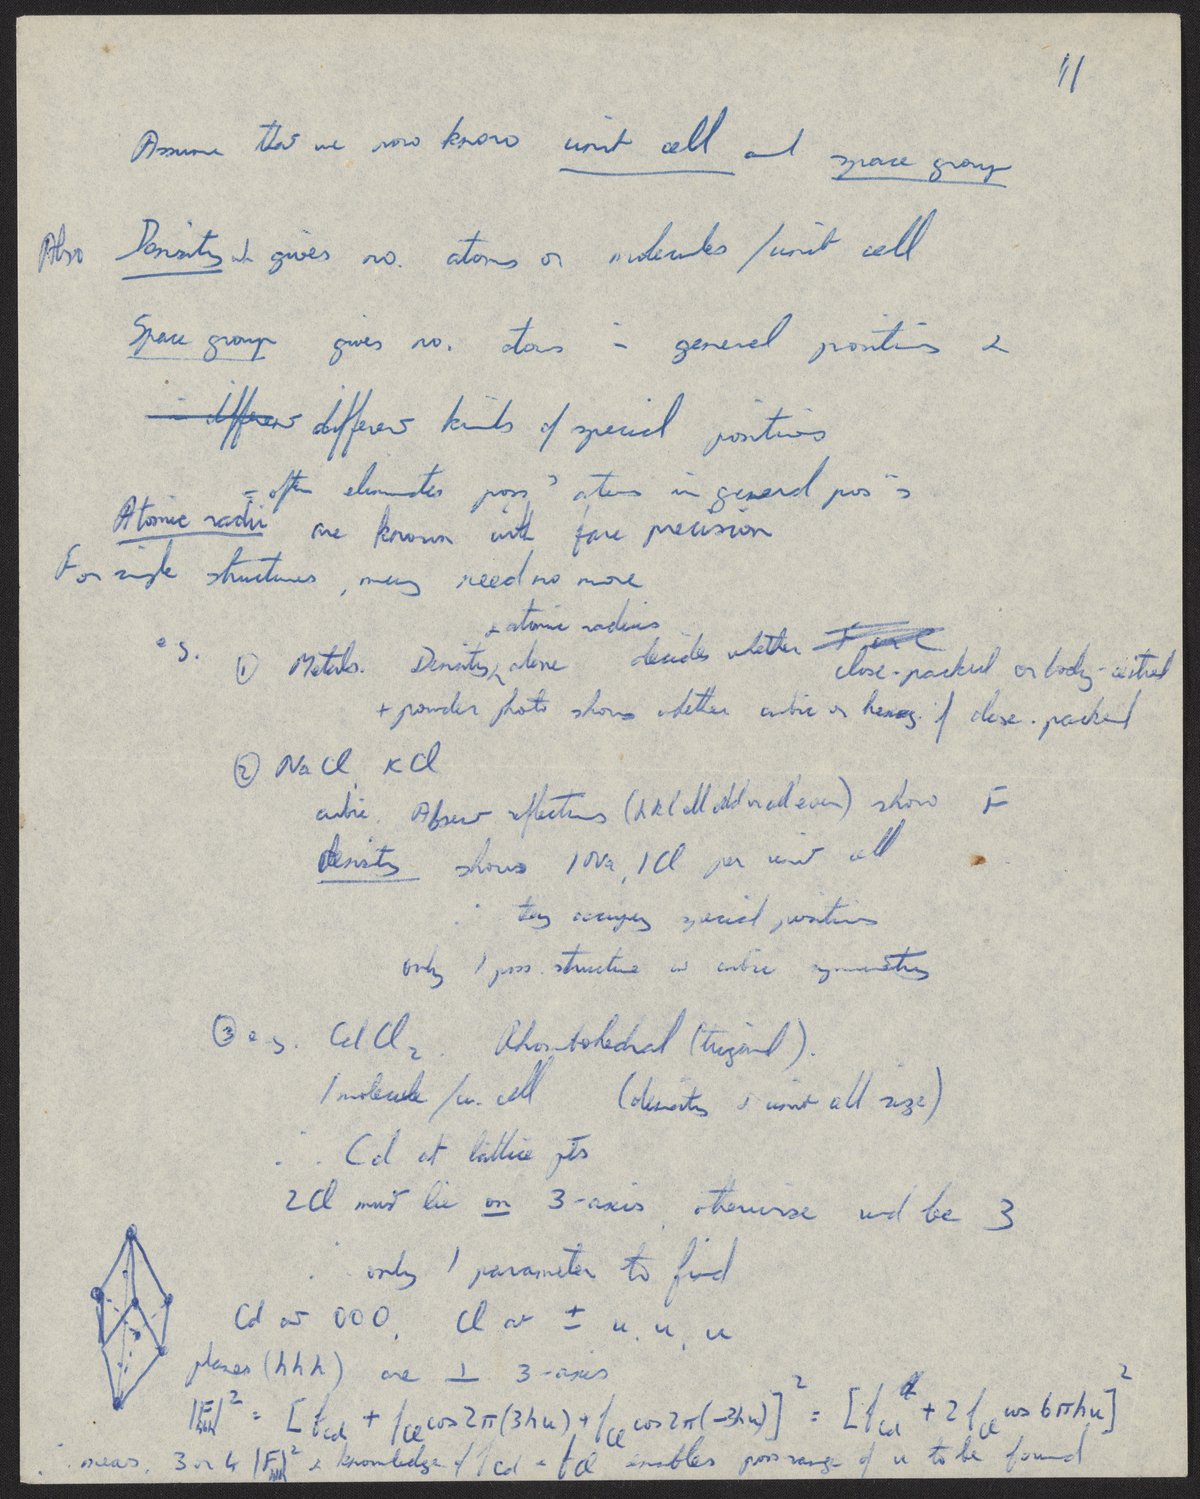 11
Assume that we now know unit cell and space group
Also Density gives no. atoms or molecules / unit cell
Space group gives no. atoms in general positions &
in different different kinds of special positions
= often eliminates poss atoms in general pos
Atomic radii are known with fair precision
For simple structures, may need no more
+ atomic radius
e.g. ① Metals. Density alone decides whether close-packed or body-centred
+ powder photo shows whether cubic or hexag. if close-packed
② NaCl, KCl
cubic. Absent reflections (hkl all odd or all even) show F
density shows 1 Na, 1 Cl per unit cell
∴ they occupy special positions
only 1 poss. structure w cubic symmetry
③ e.g. CdCl2. Rhombohedral (trigonal).
1 molecule / u. cell (density & unit cell size)
∴ Cd at lattice pts
2Cl must lie on 3-axis, otherwise wd be 3
∴ only 1 parameter to find
Cd at 000, Cl at ± u, u, u
planes (hhh) are ⊥ 3-axis
|Fhhh|² = [fCd + fCl cos 2π(3hu) + fCl cos 2π(-3hu)]² = [fCd + 2fCl cos 6πhu]²
∴ meas. 3 or 4 |Fhhh|² & knowledge of fCd & fCl enables poss range of u to be found